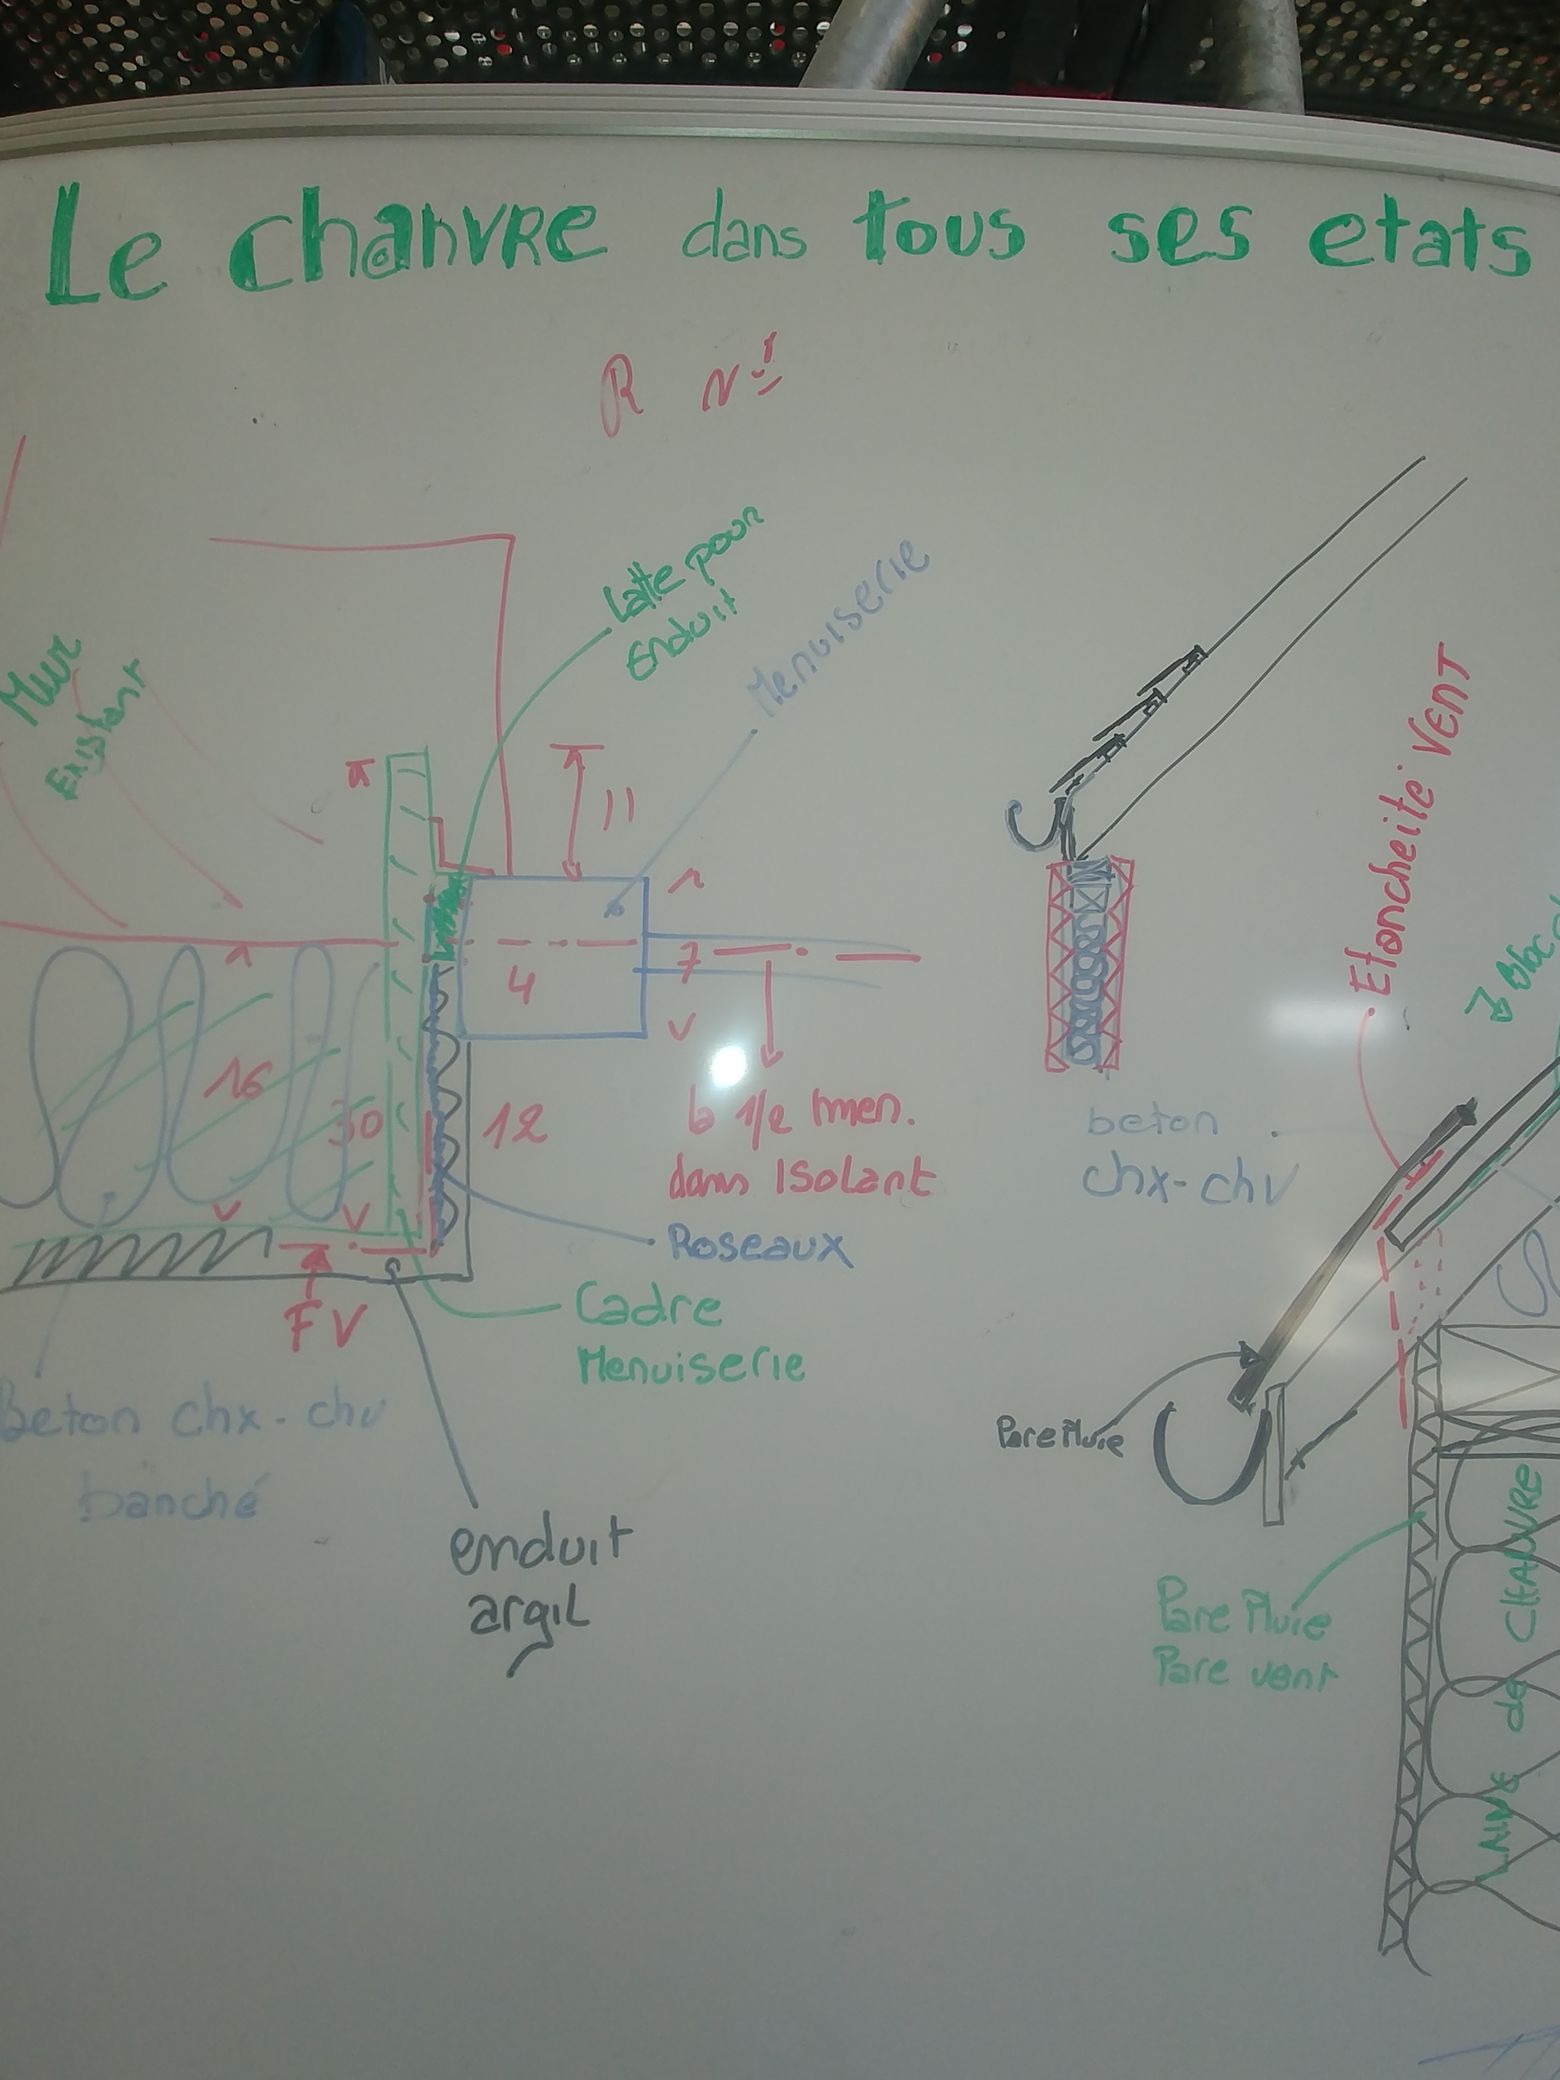 Le chanvre dans tous ses etats
R N°1
Latte pour
Enduit
Menuiserie
Mur
Existant
11
4
7
16
30
12
1/2 men.
dans Isolant
Roseaux
FV
Cadre
Menuiserie
Beton chx-chv
banché
enduit
argil
Etancheité VENT
Bloc
beton
chx-chv
Pare Pluie
Pare Pluie
Pare vent
LAINE de CHANVRE